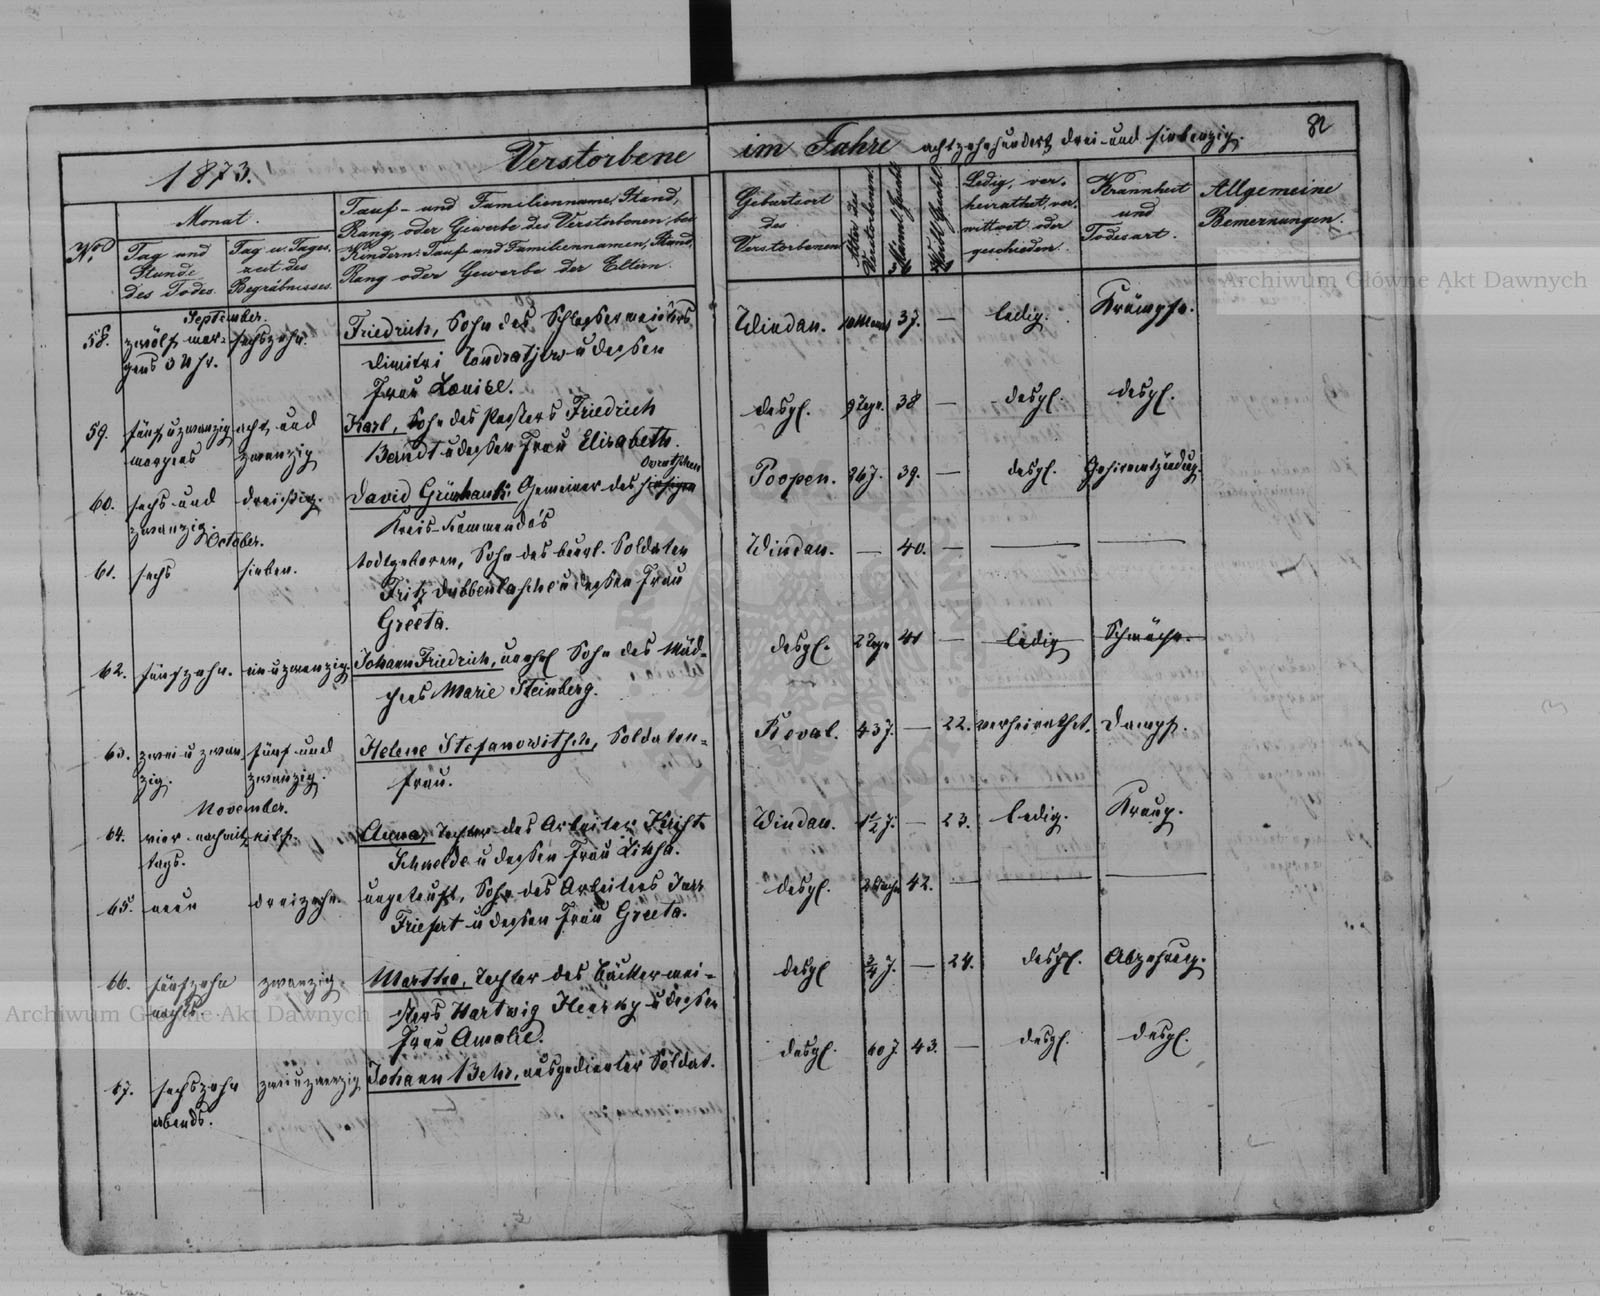 1873. Verstorbene im Jahre achtzehnhundert drei und siebenzig. 82
No.
Monat.
Tag und Stunde des Todes.
Tag u. Tageszeit des Begräbnisses.
Tauf- und Familienname, Stand,
Rang, oder Gewerbe des Verstorbenen, bei
Kindern: Tauf und Familiennamen, Stand,
Rang oder Gewerbe der Eltern.
Geburtsort
des
Verstorbenen
Alter des Verstorbenen.
Männl. Geschl.
Weibl. Geschl.
Ledig, ver-
heirathet, ver-
wittwet oder
geschieden.
Krankheit
und
Todesart.
Allgemeine
Bemerkungen.
September.
58. zwölf mor- sechszehn. Friedrich, Sohn des Schlossermeisters Windau. 37. — ledig. Krämpfe.
gens 3 Uhr. Dimitri Condratjew u dessen
Frau Louise.
59. fünf u zwanzig acht und Karl, Sohn des Friedrich desgl. 9 Tage. 38 — desgl. desgl.
morgens zwanzig Berndt u dessen Frau Elisabeth.
60. sechs und dreißig. David Grünhaut, Gemeiner des hiesigen Poopen. 26 J. 39. — desgl. Gehirnentzündung.
zwanzig. Kreis-Kommando's
October.
61. sechs sieben. todtgeboren, Sohn des beurl. Soldaten Windau. — 40. — — —
Fritz Dubbenlasche u dessen Frau
Greeta.
62. fünfzehn. ein u zwanzig. Johann Friedrich, unehel Sohn des Mäd- desgl. 2 Tage 41 — ledig Schwäche.
chens Marie Steinberg.
63. zwei u zwan- fünf und Helene Stefanowitsch, Soldaten- Reval. 43 J. — 22. verheirathet.
zig. zwanzig. frau.
November.
64. vier nachmit- eilf. Anna, Tochter des Arbeiter Windau. 1½ J. — 23. ledig. Kraup.
tags. Schmelde u dessen Frau Lihsa.
65. neun dreizehn. ungetauft, Sohn des Arbeiters desgl. 42. — — —
u dessen Frau Greeta.
66. fünfzehn zwanzig. Martha, Tochter des Bäckermei- desgl ¾ J. — 24. desgl. Abzehrung.
nachts. sters Hartwig u dessen
Frau Amalie.
67. sechszehn zwei u zwanzig Johann Behr, ausgedienter Soldat. desgl. 60 J 43. — desgl. desgl.
abends.
Archiwum Główne Akt Dawnych
Archiwum Główne Akt Dawnych